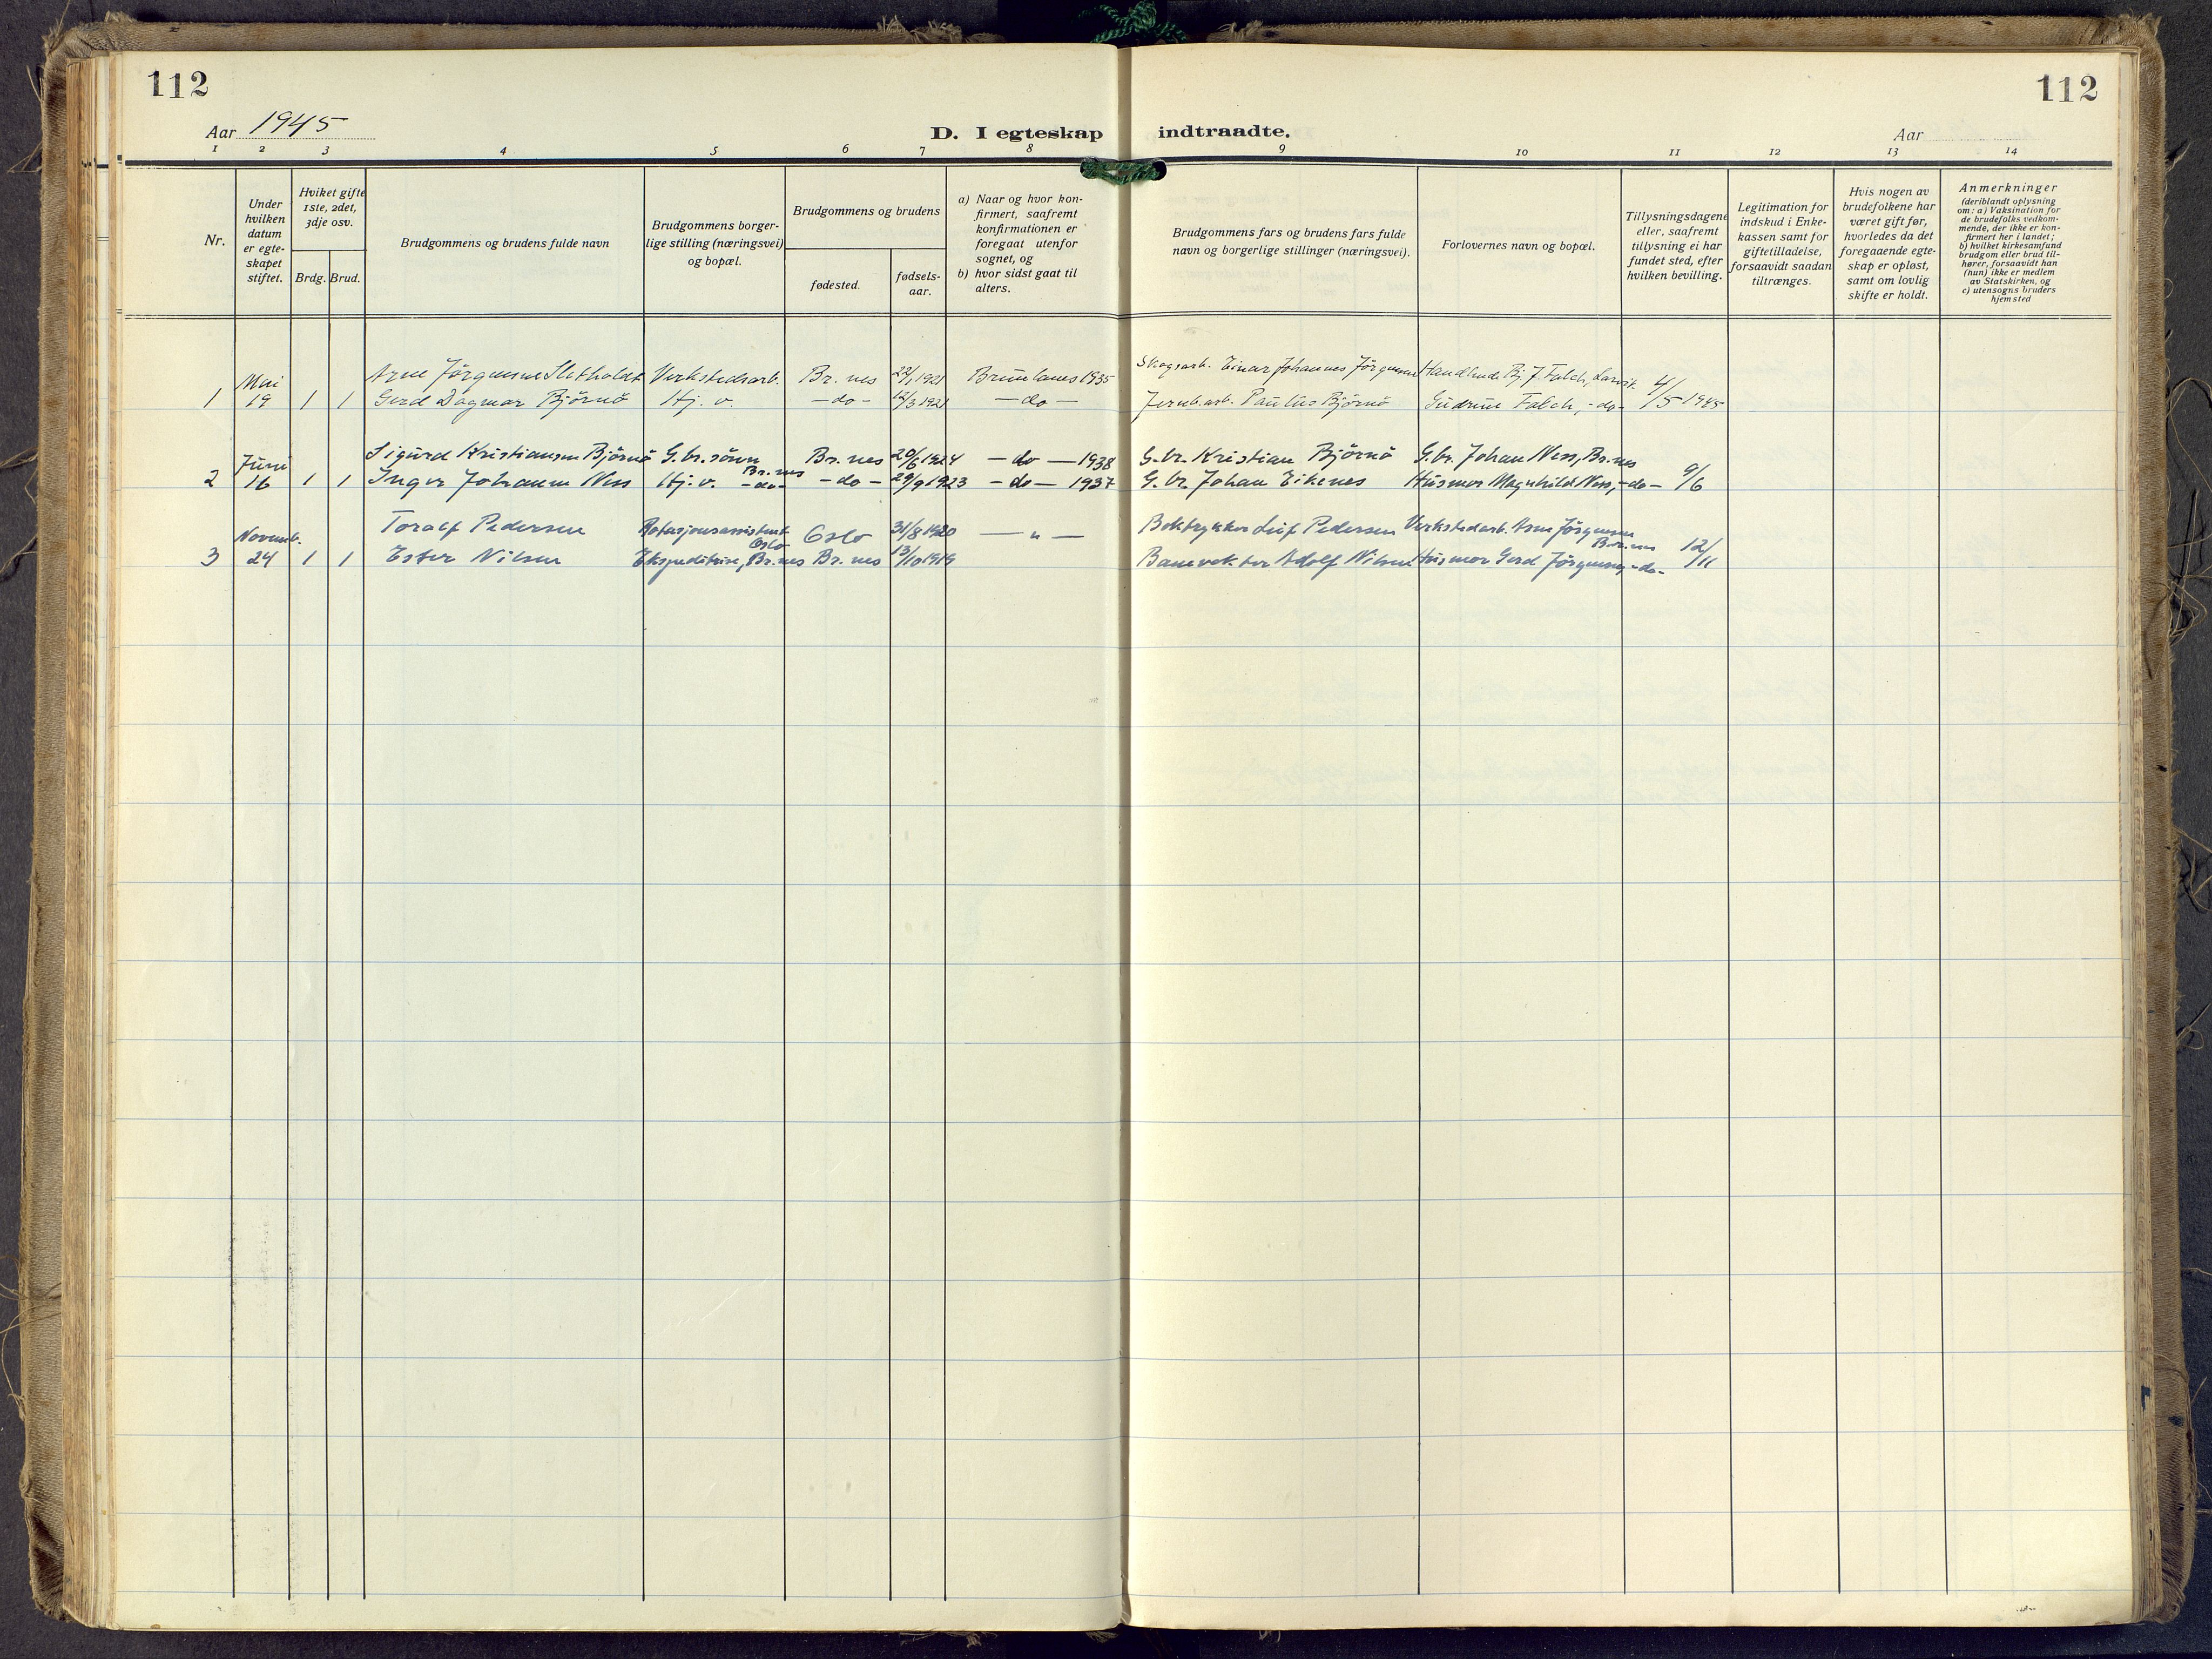 112
112
Aar 1945
D. I egteskap indtraadte.
Aar
1 2 3 4 5 6 7 8 9 10 11 12 13 14
Nr.
Under hvilken datum er egte-skapet stiftet.
Hviket gifte 1ste, 2det, 3dje osv.
Brdg. Brud.
Brudgommens og brudens fulde navn
Brudgommens borger-lige stilling (næringsvei) og bopæl.
Brudgommens og brudens
fødested.
fødsels-aar.
a) Naar og hvor kon-firmert, saafremt konfirmationen er foregaat utenfor sognet, og
b) hvor sidst gaat til alters.
Brudgommens fars og brudens fars fulde navn og borgerlige stillinger (næringsvei).
Forlovernes navn og bopæl.
Tillysningsdagene eller, saafremt tillysning ei har fundet sted, efter hvilken bevilling.
Legitimation for indskud i Enke-kassen samt for giftetilladelse, forsaavidt saadan tiltrænges.
Hvis nogen av brudefolkene har været gift før, hvorledes da det foregaaende egte-skap er opløst, samt om lovlig skifte er holdt.
Anmerkninger (deriblandt oplysning om: a) Vaksination for de brudefolks vedkom-mende, der ikke er kon-firmert her i landet; b) hvilket kirkesamfund brudgom eller brud til-hører, forsaavidt han (hun) ikke er medlem av Statskirken, og c) utensogns bruders hjemsted
Mai Arne Jörgensen Sletholdt Verkstedsarb. Br.nes 22/1 1921 Brunlanes 1935 Skogsarb. Einar Johannes Jörgensen Falch, Larvik 4/5 1945
1 19 1 1 Gerd Dagmar Björnö Hj. v. -do- 12/3 1921 -do- Jernb.arb. Paulus Björnö Gudrun Falch, -do-
Juni Sigurd Kristiansen Björnö G.br.sönn Br.nes Br.nes 20/6 1924 -do- 1938 G.br. Kristian Björnö G.br. Johan Ness, Br.nes
2 16 1 1 Inger Johanne Ness Hj. v. -do- -do- 29/9 1923 -do- 1937 G.br. Johan Eikenes Husmor Magnhild Ness, -do- 9/6
Novemb. Toralf Pedersen Rotasjonsassistent Oslo Oslo 31/8 1920 - " - Boktrykker Leif Pedersen Verkstedarb. Arne Jörgensen Br.nes
3 24 1 1 Ester Nilsen Ekspeditrise, Br.nes Br.nes 13/10 1919 Banevokter Adolf Nilsen Husmor Gerd Jörgensen, -do- 12/11